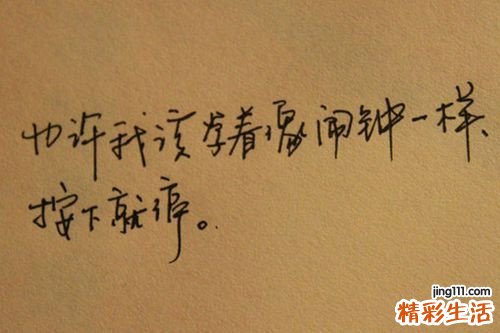 也许我该学着像闹钟一样、
按下就停。
jing111.com
精彩生活